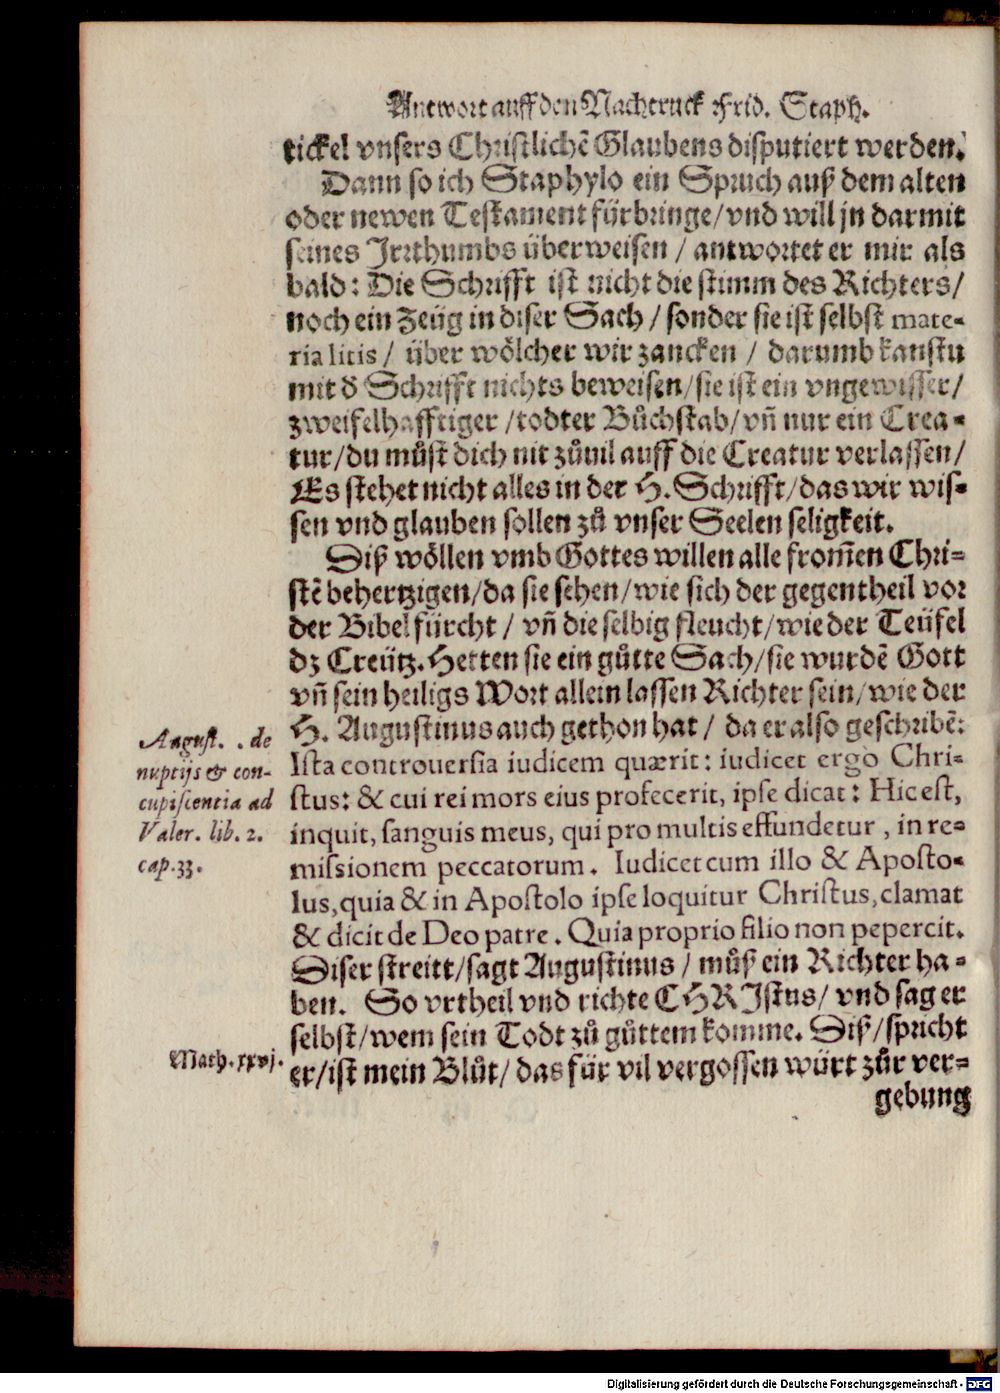 Antwort auff den Nachtruck Frid. Staph.
tickel vnsers Christlichẽ Glaubens disputiert werden.
Dann so ich Staphylo ein Spruch auß dem alten
oder newen Testament fürbringe/vnd will jn darmit
seines Irrthumbs überweisen / antwortet er mir als
bald: Die Schrifft ist nicht die stimm des Richters/
noch ein Zeüg in diser Sach / sonder sie ist selbst mate-
ria litis / über wölcher wir zancken / darumb kanstu
mit d̃ Schrifft nichts beweisen/sie ist ein vngewisser/
zweifelhafftiger /todter Bůchstab/vñ nur ein Crea-
tur/du můst dich nit zůuil auff die Creatur verlassen/
Es stehet nicht alles in der H. Schrifft/das wir wis-
sen vnd glauben sollen zů vnser Seelen seligkeit.
Diß wöllen vmb Gottes willen alle from̃en Chri-
stẽ behertzigen/da sie sehen/wie sich der gegentheil vor
der Bibel fürcht / vñ die selbig fleucht/wie der Teüfel
dz Creütz. Hetten sie ein gůtte Sach/sie wurdẽ Gott
vñ sein heiligs Wort allein lassen Richter sein/wie der
H. Augustinus auch gethon hat / da er also geschribẽ:
August. . de
nuptijs & con-
cupiscentia ad
Valer. lib. 2.
cap. 33.
Ista controuersia iudicem quærit: iudicet ergo Chri-
stus: & cui rei mors eius profecerit, ipse dicat: Hic est,
inquit, sanguis meus, qui pro multis effundetur , in re-
missionem peccatorum. Iudicet cum illo & Aposto-
lus, quia & in Apostolo ipse loquitur Christus, clamat
& dicit de Deo patre. Quia proprio filio non pepercit.
Diser streitt/sagt Augustinus / můß ein Richter ha-
ben. So vrtheil vnd richte CHRIstus/ vnd sag er
selbst/wem sein Todt zů gůttem komme. Diß/spricht
Math. xxvj.
er/ist mein Blůt/ das für vil vergossen würt zůr ver-
gebung
Digitalisierung gefördert durch die Deutsche Forschungsgemeinschaft - DFG